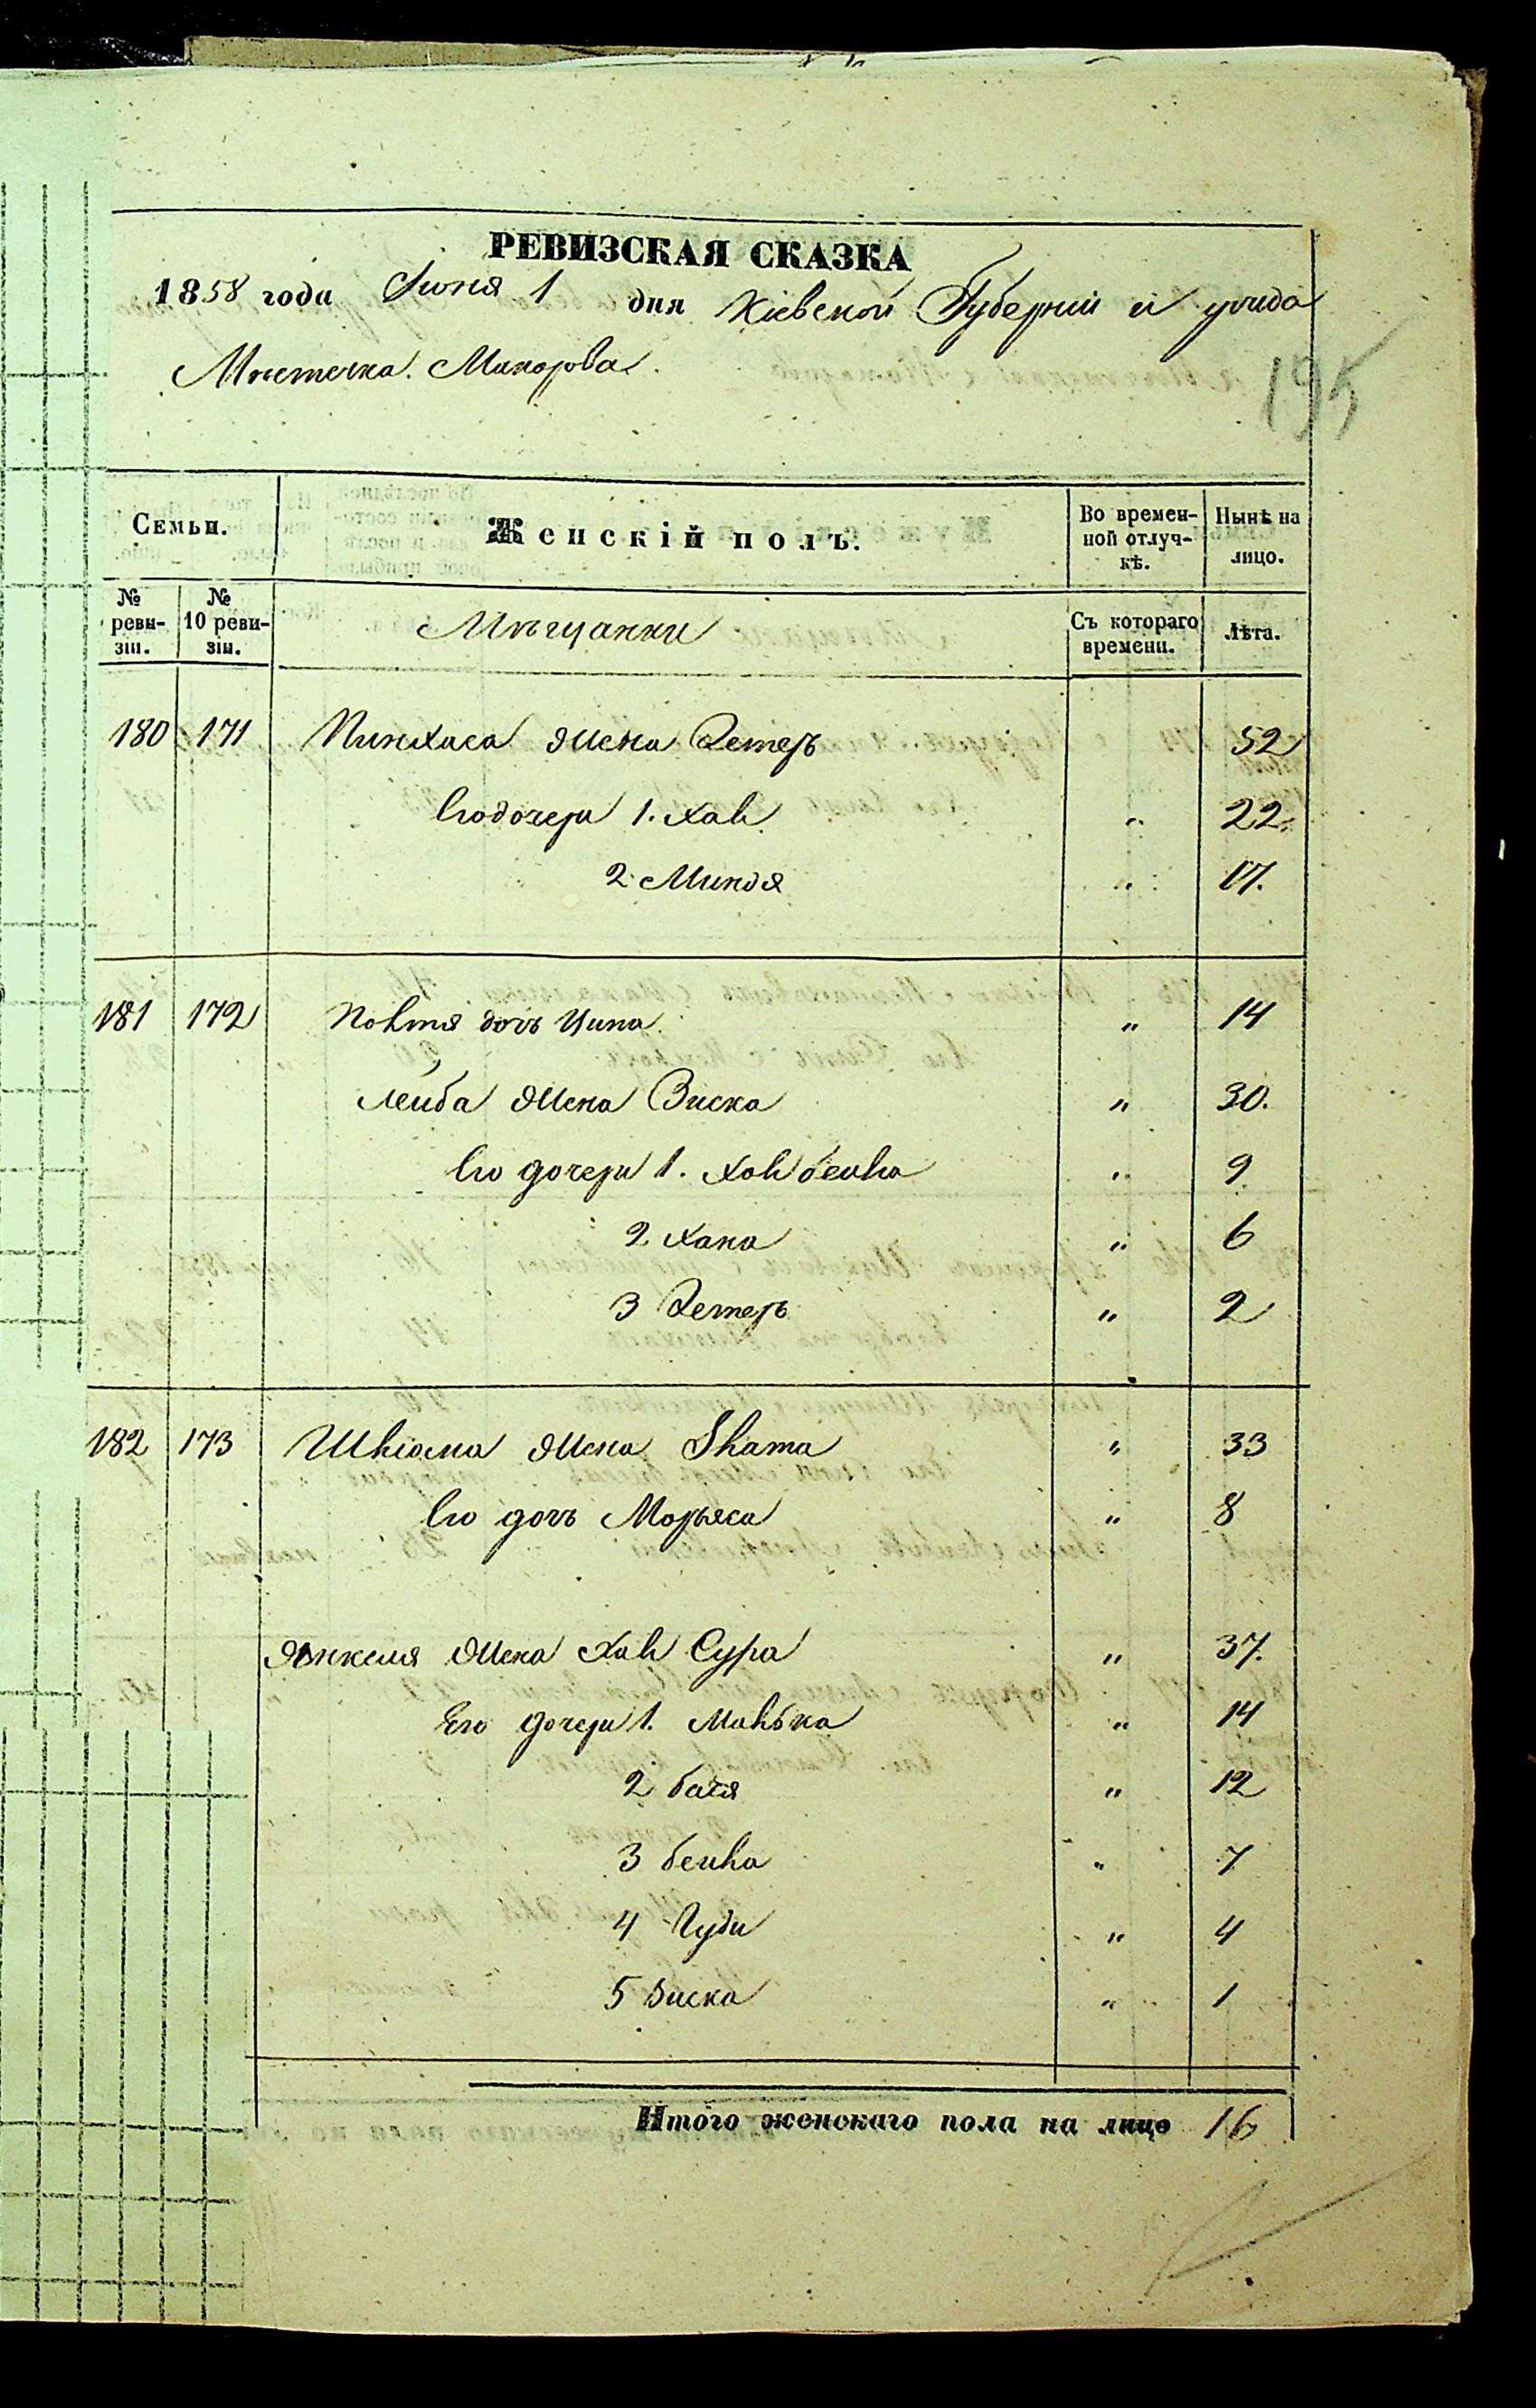 РЕВИЗСКАЯ СКАЗКА
1858 года Іюня 1 дня Кіевской Губерніи и уѣзда
Мѣстечка Макарова
195
Семьи. Женскій полъ. Во времен-ной отлуч-кѣ. Нынѣ на лицо.
№ реви-зіи. № 10 реви-зіи. Мѣщанки Съ котораго времени. Лѣта.
180 171 Пинхаса жена Эстеръ 52
Его дочери 1. Хая " 22
2 Миндя " 17.
181 172 дочь Ципа " 14
Лейба жена Виска " 30.
Его дочери 1. Хая Бейла " 9
2 Хана " 6
3 Эстеръ " 2
182 173 Шлiома жена Злата " 33
Его дочь Марьяса " 8
Янкеля жена Хая Сура " 37.
Его дочери 1. Малька " 14
2 Бася " 12
3 Бейла " 7
4 " 4
5 Виска " 1
Итого женскаго пола на лицо 16